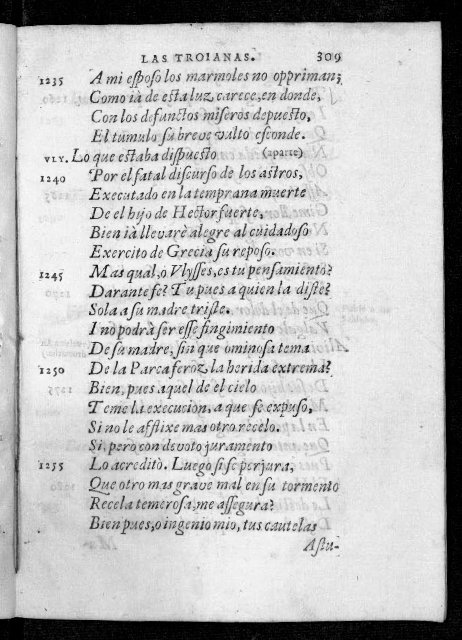 LAS TROIANAS. 309
1235 A mi esposo los marmoles no oppriman;
Como ià de esta luz carece, en donde,
Con los defunctos miseros depuesto,
El tumulo su breve vulto esconde.
VLY. Lo que estaba dispuesto (aparte)
1240 Por el fatal discurso de los astros,
Executado en la temprana muerte
De el hijo de Hector fuerte,
Bien ià llevarè alegre al cuidadoso
Exercito de Grecia su reposo.
1245 Mas qual, o Vlysses, es tu pensamiento?
Darante fe? Tu pues a quien la diste?
Sola a su madre triste.
I nò podrà ser esse fingimiento
De su madre, sin que ominosa tema
1250 De la Parca feroz, la herida extrema?
Bien, pues aquel de el cielo
Teme la execucion, a que se expuso,
Si no le afflixe mas otro recelo.
Si, pero con devoto juramento
1255 Lo acreditò. Luego si se perjura,
Que otro mas grave mal en su tormento
Recela temerosa, me assegura?
Bien pues, o ingenio mio, tus cautelas
Astu-